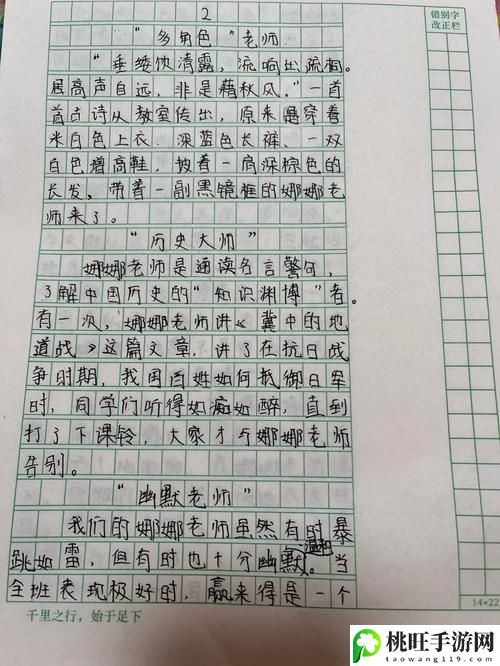 2
错别字
改正栏
"多角色"老师
"垂緌饮清露,流响出疏桐。
居高声自远,非是藉秋风。"一首
首古诗从教室传出,原来是穿着
米白色上衣、深蓝色长裤、一双
白色增高鞋,披着一肩深棕色的
长发,带着一副黑镜框的娜娜老
师来了。
"历史大师"
娜娜老师是通读名言警句,
了解中国历史的"知识渊博"者。
有一次,娜娜老师讲《冀中的地
道战》这篇文章,讲了在抗日战
争时期,我国百姓如何抵御日军
时,同学们听得如痴如醉,直到
打了下课铃,大家才与娜娜老师
告别。
"幽默老师"
我们的娜娜老师虽然有时暴
跳如雷,但有时也十分幽默温和。当
全班表现极好时,赢来得是一个
14×22
千里之行,始于足下
桃旺手游网
taowang119.com